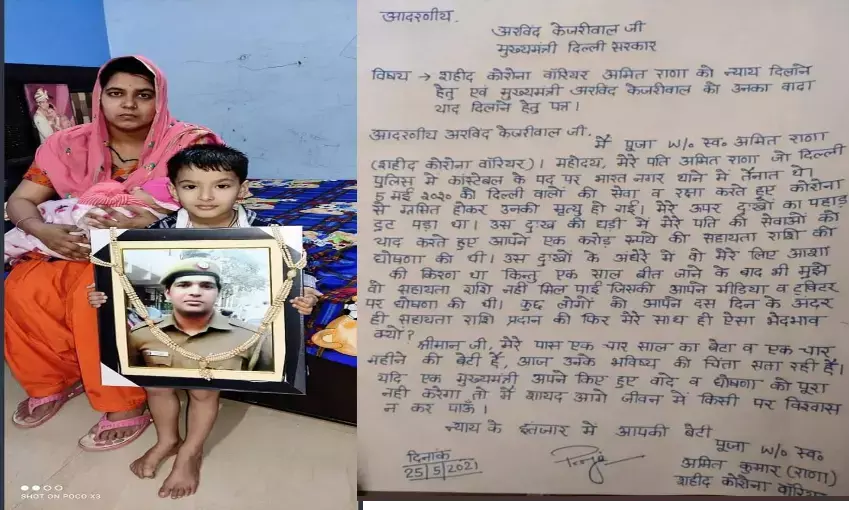 SHOT ON POCO X3
आदरणीय.
अरविंद केजरीवाल जी
मुख्यमंत्री दिल्ली सरकार
विषय → शहीद कोरोना वॉरियर अमित राणा को न्याय दिलाने
हेतु एवं मुख्यमंत्री अरविंद केजरीवाल को उनका वादा
याद दिलाने हेतु पत्र।
आदरणीय अरविंद केजरीवाल जी.
मैं पूजा W/o स्व० अमित राणा
(शहीद कोरोना वॉरियर)। महोदय, मेरे पति अमित राणा जो दिल्ली
पुलिस में कांस्टेबल के पद पर भारत नगर थाने में तैनात थे।
5 मई 2020 को दिल्ली वालों की सेवा व रक्षा करते हुए कोरोना
से ग्रसित होकर उनकी मृत्यु हो गई। मेरे ऊपर दुःखों का पहाड़
टूट पड़ा था। उस दुःख की घड़ी में मेरे पति की सेवाओं को
याद करते हुए आपने एक करोड़ रुपये की सहायता राशि की
घोषणा की थी। उस दुःखों के अंधेरे में वो मेरे लिए आशा
की किरण था किन्तु एक साल बीत जाने के बाद भी मुझे
वो सहायता राशि नहीं मिल पाई जिसकी आपने मीडिया व ट्विटर
पर घोषणा की थी। कुछ लोगों को आपने दस दिन के अंदर
ही सहायता राशि प्रदान की फिर मेरे साथ ही ऐसा भेदभाव
क्यों?
श्रीमान जी, मेरे पास एक चार साल का बेटा व एक चार
महीने की बेटी है, आज उनके भविष्य की चिंता सता रही है।
यदि एक मुख्यमंत्री अपने किए हुए वादे व घोषणा को पूरा
नहीं करेगा तो मैं शायद आगे जीवन में किसी पर विश्वास
न कर पाऊँ।
न्याय के इंतजार में आपकी बेटी
पूजा W/o स्व०
अमित कुमार (राणा)
शहीद कोरोना वॉरियर
दिनांक
25/5/2021
Pooja